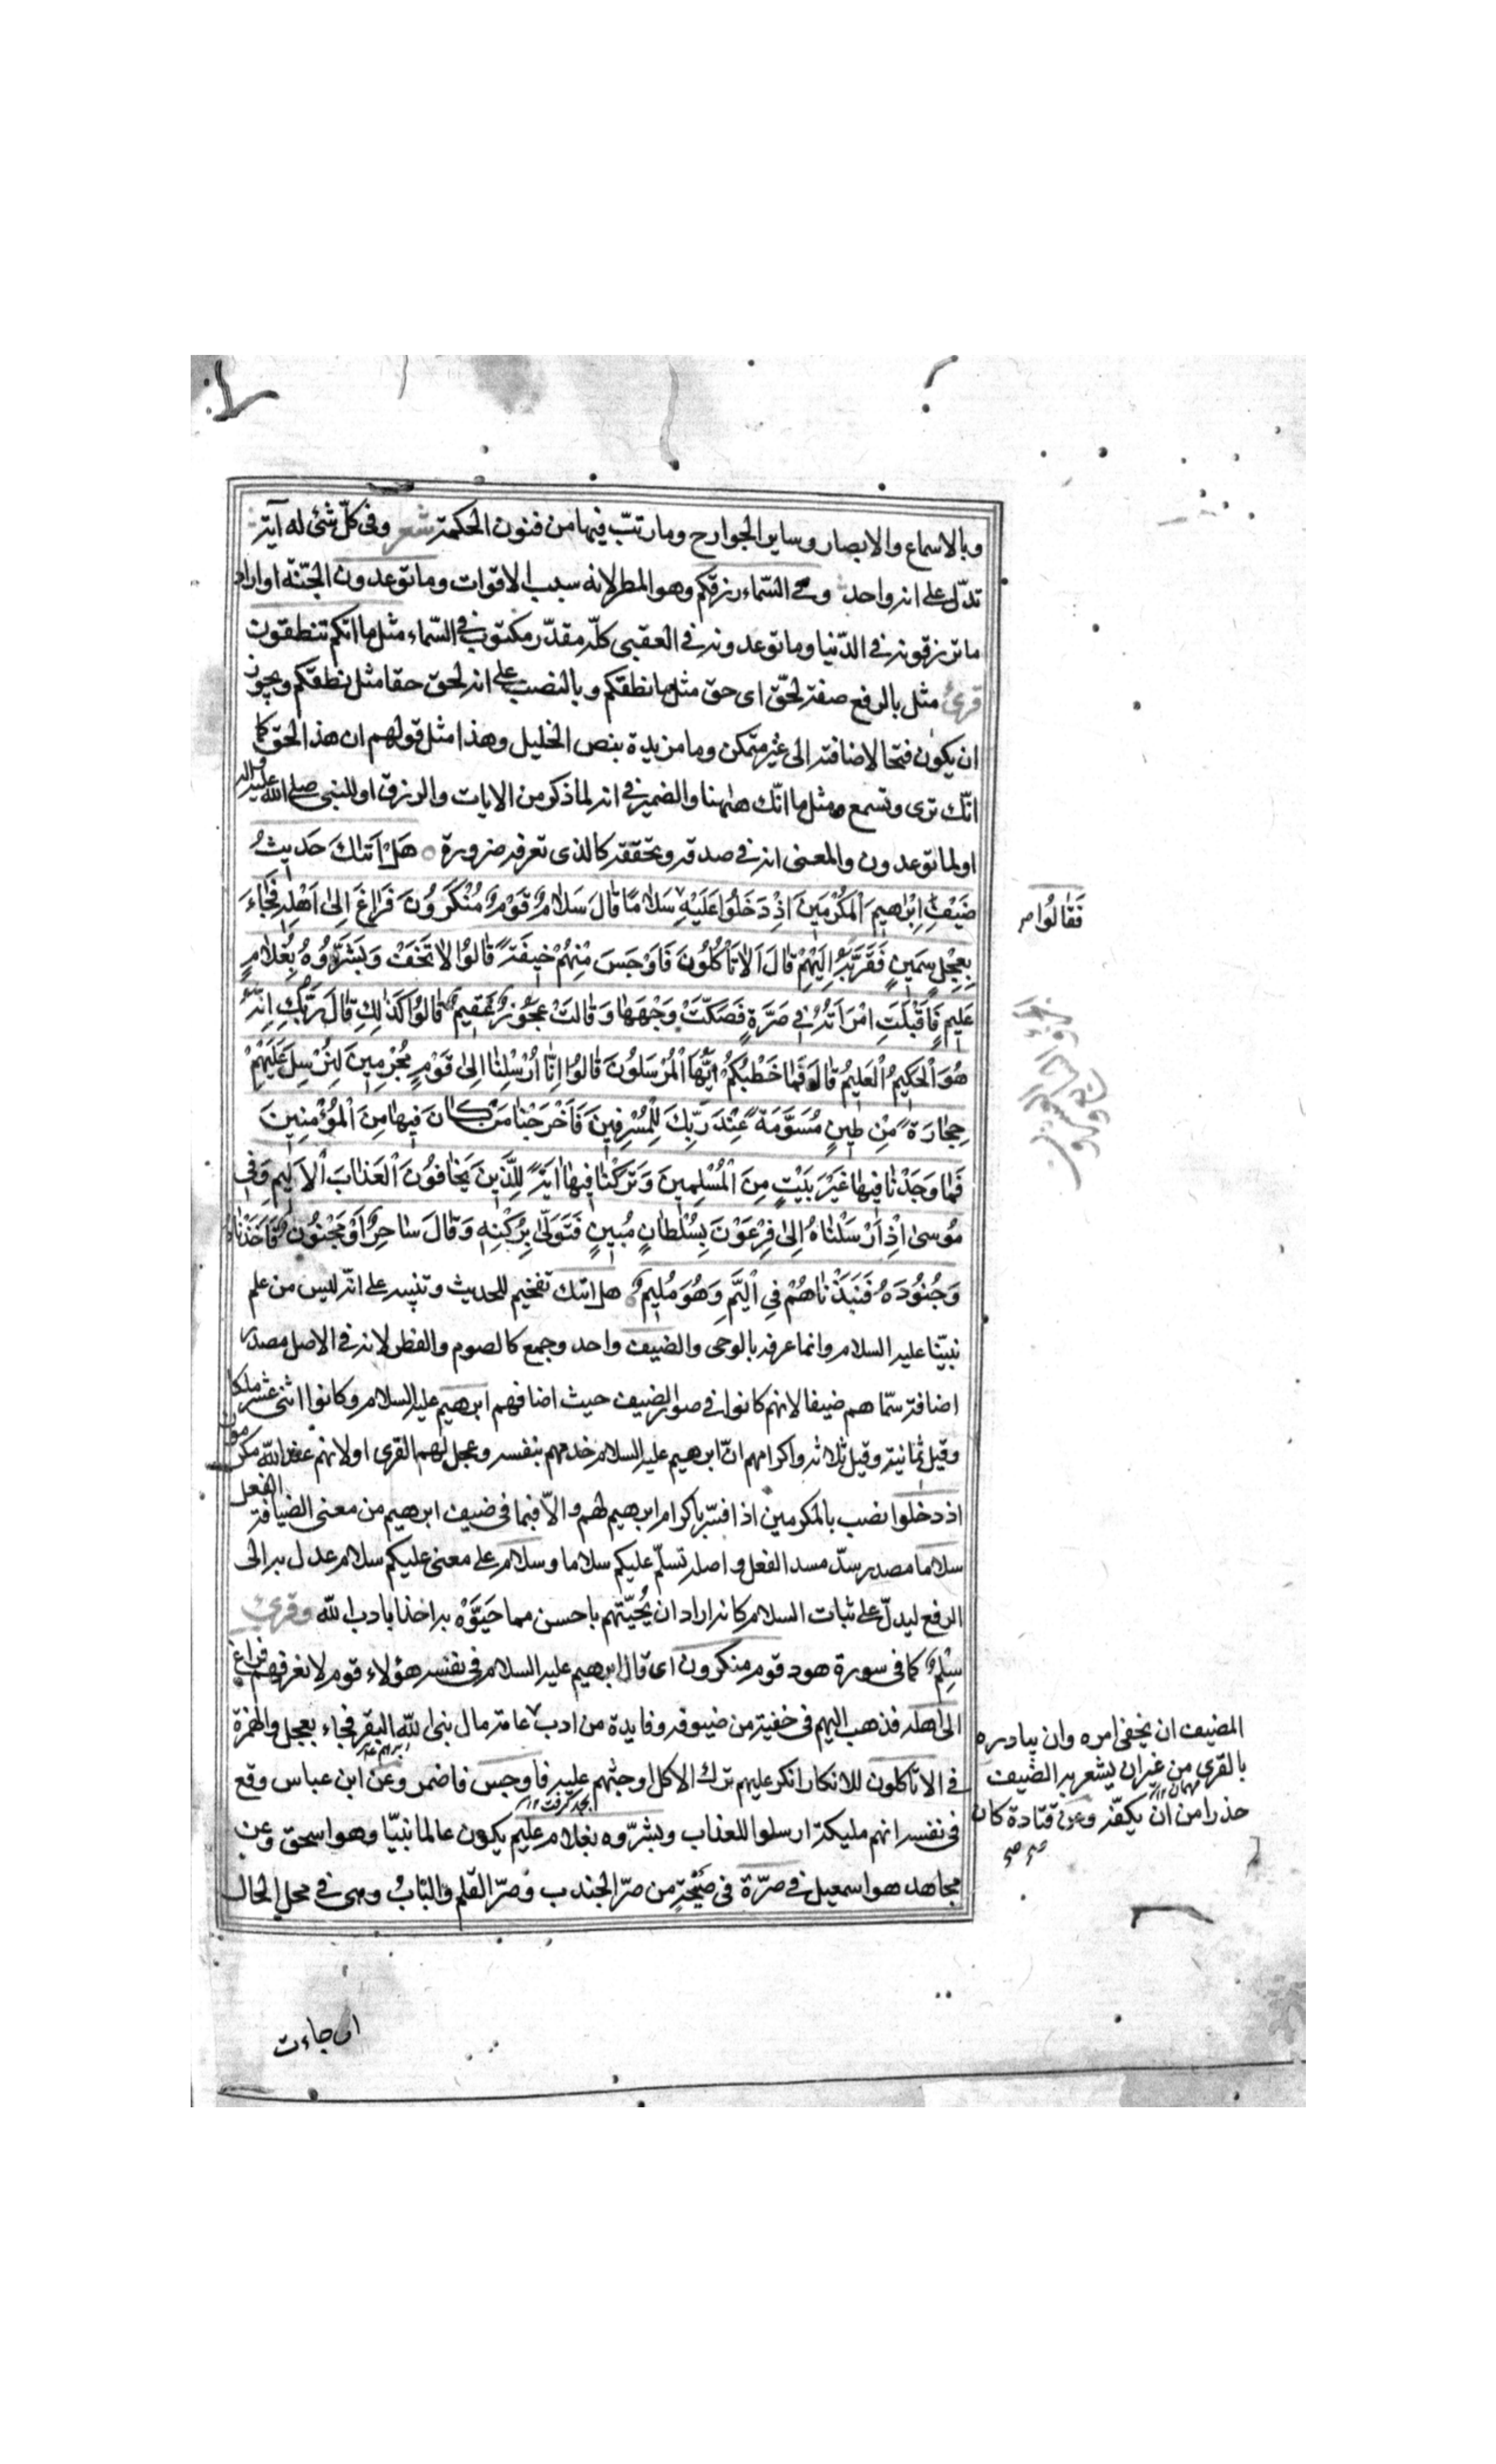 وبالاسماع والابصار وساير الجوارح ومارتب فيها من فنون الحكمة شعر وفي كلّ شئ له آية
تدلّ على انه واحد وفي السّماء رزقكم وهو المطر لانه سبب الاقوات وما توعدون الجنّة او اراد
ما ترزقونه في الدّنيا وما توعدونه في العقبى كلّه مقدّر مكتوب في السّماء مثل ما انّكم تنطقون
قرئ مثل بالرفع صفة لحقّ اى حق مثل ما نطقكم وبالنصب على انه لحق حقا مثل نطقكم ويجوز
ان يكون فتحا لاضافته الى غير متمكن وما مزيدة بنص الخليل وهذا مثل قولهم ان هذا لحق كما
انّك ترى وتسمع ومثل ما انّك هٰهنا والضمير في انه لما ذكر من الايات والرزق او للنبي صلى الله عليه واله
او لما توعدون والمعنى انه في صدقه وتحققه كالذى تعرفه ضرورة هَلْ اَتٰىكَ حَديثُ
ضَيْفِ اِبْرٰهيمَ الْمُكْرَمينَ اِذْ دَخَلُوا عَلَيْهِ سَلَامًا قَالَ سَلَامٌ قَوْمٌ مُنْكَرُونَ فَرَاغَ اِلٰى اَهْلِهِ فَجَاءَ
فَقَالُوا
بِعِجْلٍ سَمينٍ فَقَرَّبَهُ اِلَيْهِمْ قَالَ اَلَا تَأْكُلُونَ فَاَوْجَسَ مِنْهُمْ خيفَةً قَالُوا لَا تَخَفْ وَبَشَّرُوهُ بِغُلَامٍ
عَليمٍ فَاَقْبَلَتِ امْرَاَتُهُ في صَرَّةٍ فَصَكَّتْ وَجْهَهَا وَقَالَتْ عَجُوزٌ عَقيمٌ قَالُوا كَذٰلِكِ قَالَ رَبُّكِ اِنَّهُ
هُوَ الْحَكيمُ الْعَليمُ قَالَ فَمَا خَطْبُكُمْ اَيُّهَا الْمُرْسَلُونَ قَالُوا اِنَّا اُرْسِلْنَا اِلٰى قَوْمٍ مُجْرِمينَ لِنُرْسِلَ عَلَيْهِمْ
حِجَارَةً مِنْ طينٍ مُسَوَّمَةً عِنْدَ رَبِّكَ لِلْمُسْرِفينَ فَاَخْرَجْنَا مَنْ كَانَ فيهَا مِنَ الْمُؤْمِنينَ
فَمَا وَجَدْنَا فيهَا غَيْرَ بَيْتٍ مِنَ الْمُسْلِمينَ وَتَرَكْنَا فيهَا اٰيَةً لِلَّذينَ يَخَافُونَ الْعَذَابَ الْاَليمَ وَفي
مُوسٰى اِذْ اَرْسَلْنَاهُ اِلٰى فِرْعَوْنَ بِسُلْطَانٍ مُبينٍ فَتَوَلّٰى بِرُكْنِهِ وَقَالَ سَاحِرٌ اَوْ مَجْنُونٌ فَاَخَذْنَاهُ
وَجُنُودَهُ فَنَبَذْنَاهُمْ فِي الْيَمِّ وَهُوَ مُليمٌ هل اتىك تفخيم للحديث وتنبيه على انّه ليس من علم
نبيّنا عليه السلام وانما عرفه بالوحى والضيف واحد وجمع كالصوم والفطر لانه في الاصل مصدر
اضافة سمّاهم ضيفا لانهم كانوا في صورة الضيف حيث اضافهم ابرهيم عليه السلام وكانوا اثنى عشر ملكا
وقيل ثمانية وقيل ثلاثة واكرامهم انّ ابرهيم عليه السلام خدمهم بنفسه وعجل لهم القرى او لانهم عند الله مكرمون
اذ دخلوا نصب بالمكرمين اذا فسّر باكرام ابرهيم لهم والّا فبما فى ضيف ابرهيم من معنى الضيافة الفعل
سلاما مصدر سدّ مسد الفعل واصله نسلّم عليكم سلاما وسلام على معنى عليكم سلام عدل به الى
الرفع ليدلّ على ثبات السلام كانه اراد ان يُحيّيهم باحسن مما حَيَّوْهُ به اخذا بادب الله وقرئ
سِلْمٌ كما فى سورة هود قوم منكرون اى قال ابرهيم عليه السلام فى نفسه هؤلاء قوم لا نعرفهم فراغ
الى اهله فذهب اليهم فى خفية من ضيوفه وفايدة من ادب عامة مال نبى الله البقر فجاء بعجل والهمزة
المضيف ان يخفى امره وان يبادره
بالقرى من غير ان يشعر به الضيف
حذرا من ان يكفّه وعن قتادة كان
فى الا تاكلون للانكار انكر عليهم ترك الاكل او حثهم عليه فاوجس فاضمر وعن ابن عباس وقع
فى نفسه انهم مليكة ارسلوا للعذاب وبشّروه بغلام عليم يكون عالما نبيّا وهو اسحق وعن
مجاهد هو اسمعيل في صرّة فى صَيْحَةٍ من صرّ الجندب وصرّ القلم والبَابُ وهى في محل الحال
اى جاءت